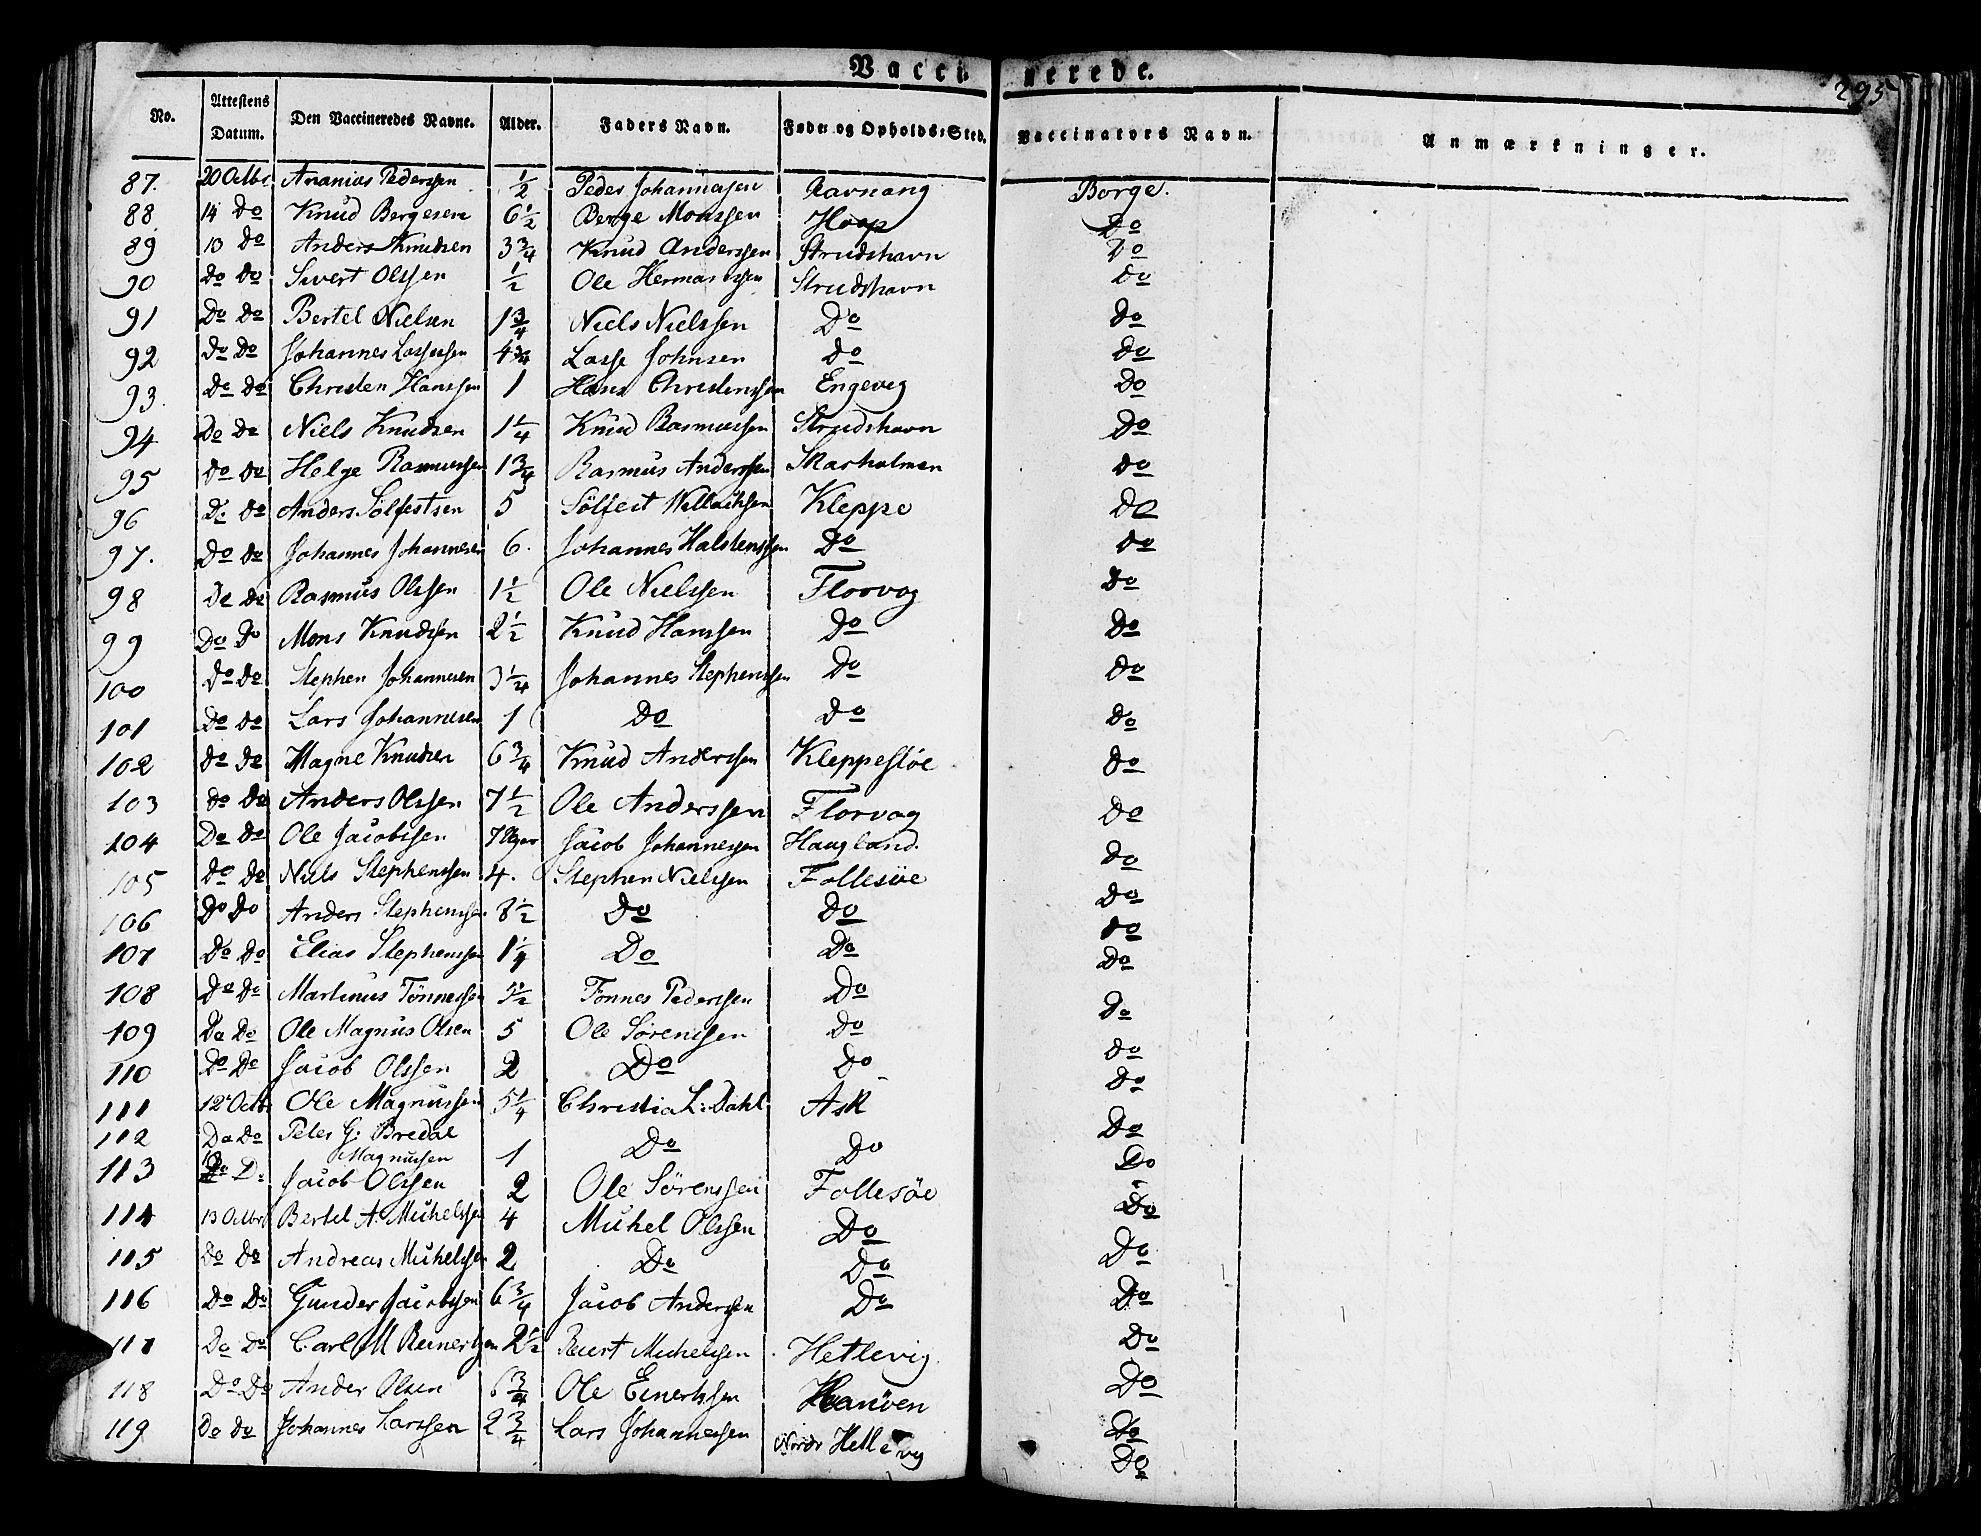 Vaccinerede.
295
No. Attestens Datum. Den Vaccineredes Navne. Alder. Faders Navn. Føde og Opholds-Sted. Vaccinators Navn. Anmærkninger.
87. 20 Octbr Ananias Pederssen 1/2 Peder Johannessen Ravnang Borge.
88. 14 Do Knud Bergesen 6 1/2 Berge Monssen Hoop Do
89 13 Do Anders Knudsen 3 3/4 Knud Anderssen Strudshavn Do
90 Do Do Sivert Olssen 1/2 Ole Hermanssen Strudshavn Do
91 Do Do Bertel Nielsen 1 3/4 Niels Nielssen Do Do
92 Do Do Johannes Lassessen 4 3/4 Lasse Johnsen Do Do
93. Do Do Christen Hanssen 1 Hans Christenssen Engevig Do
94 Do Do Niels Knudsen 1 1/4 Knud Rasmussen Strudshavn Do
95 Do Do Helge Rasmussen 1 3/4 Rasmus Anderssen Skarholmen Do
96 Do Do Anders Solfestsen 5 Solfest Willachsen Kleppe Do
97. Do Do Johannes Johannesen 6. Johannes Halstenssen Do Do
98 Do Do Rasmus Olssen 1 1/2 Ole Nielssen Florvag Do
99 Do Do Mons Knudsen 2 1/2 Knud Hanssen Do Do
100 Do Do Stephen Johannesen 3 1/4 Johannes Stephenssen Do Do
101 Do Do Lars Johannesen 1 Do Do Do
102 Do Do Magne Knudsen 6 3/4 Knud Anderssen Kleppesløe Do
103 Do Do Anders Olssen 7 1/2 Ole Anderssen Florvag Do
104 Do Do Ole Jacobssen 7 Uger Jacob Johannessen Haugland. Do
105 Do Do Niels Stephenssen 4. Stephen Nielssen Follesøe Do
106 Do Do Anders Stephenssen 8 1/2 Do Do Do
107 Do Do Elias Stephenssen 1 1/4 Do Do Do
108 Do Do Martinus Tönnessen 5 1/2 Tönnes Pederssen Do Do
109 Do Do Ole Magnus Olsen 5 Ole Sörenssen Do Do
110 Do Do Jacob Olssen 2 Do Do Do
111 12 Octb Ole Magnussen 5 1/4 Christia L: Dahl Ask Do
112 Do Do Peter G: Bredal Magnussen 1 Do Do Do
113 Do Do Jacob Olssen 2 Ole Sörenssen Follesøe Do
114 13 Octbr Bertel A: Michelssen 4 Michel Olssen Do Do
115 Do Do Andreas Michelssen 2 Do Do Do
116 Do Do Gunder Jacobssen 6 3/4 Jacob Anderssen Do Do
117 Do Do Carl M Reinertsen 2 1/2 Reiert Michelssen Hetlevig. Do
118 Do Do Ander Olsen 6 3/4 Ole Einertssen Hanöen Do
119 Do Do Johannes Larssen 2 3/4 Lars Johannessen Nordr Hetlevig Do